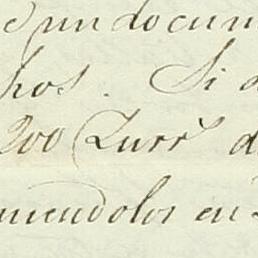 un docum
hos. Si d
200 Zurr.s d
niendolos en